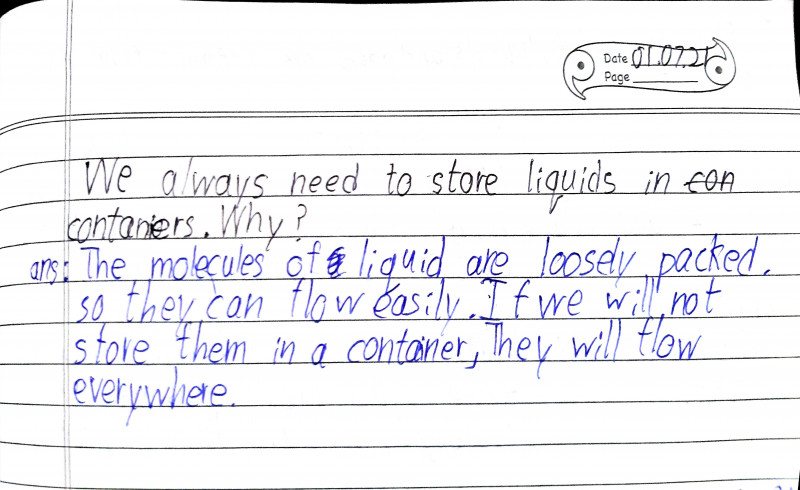 Date 01.07.21
Page
We always need to store liquids in con
contaniers. Why?
ans: The molecules of liquid are loosely packed.
so they can flow easily. If we will not
store them in a container, They will flow
everywhere.